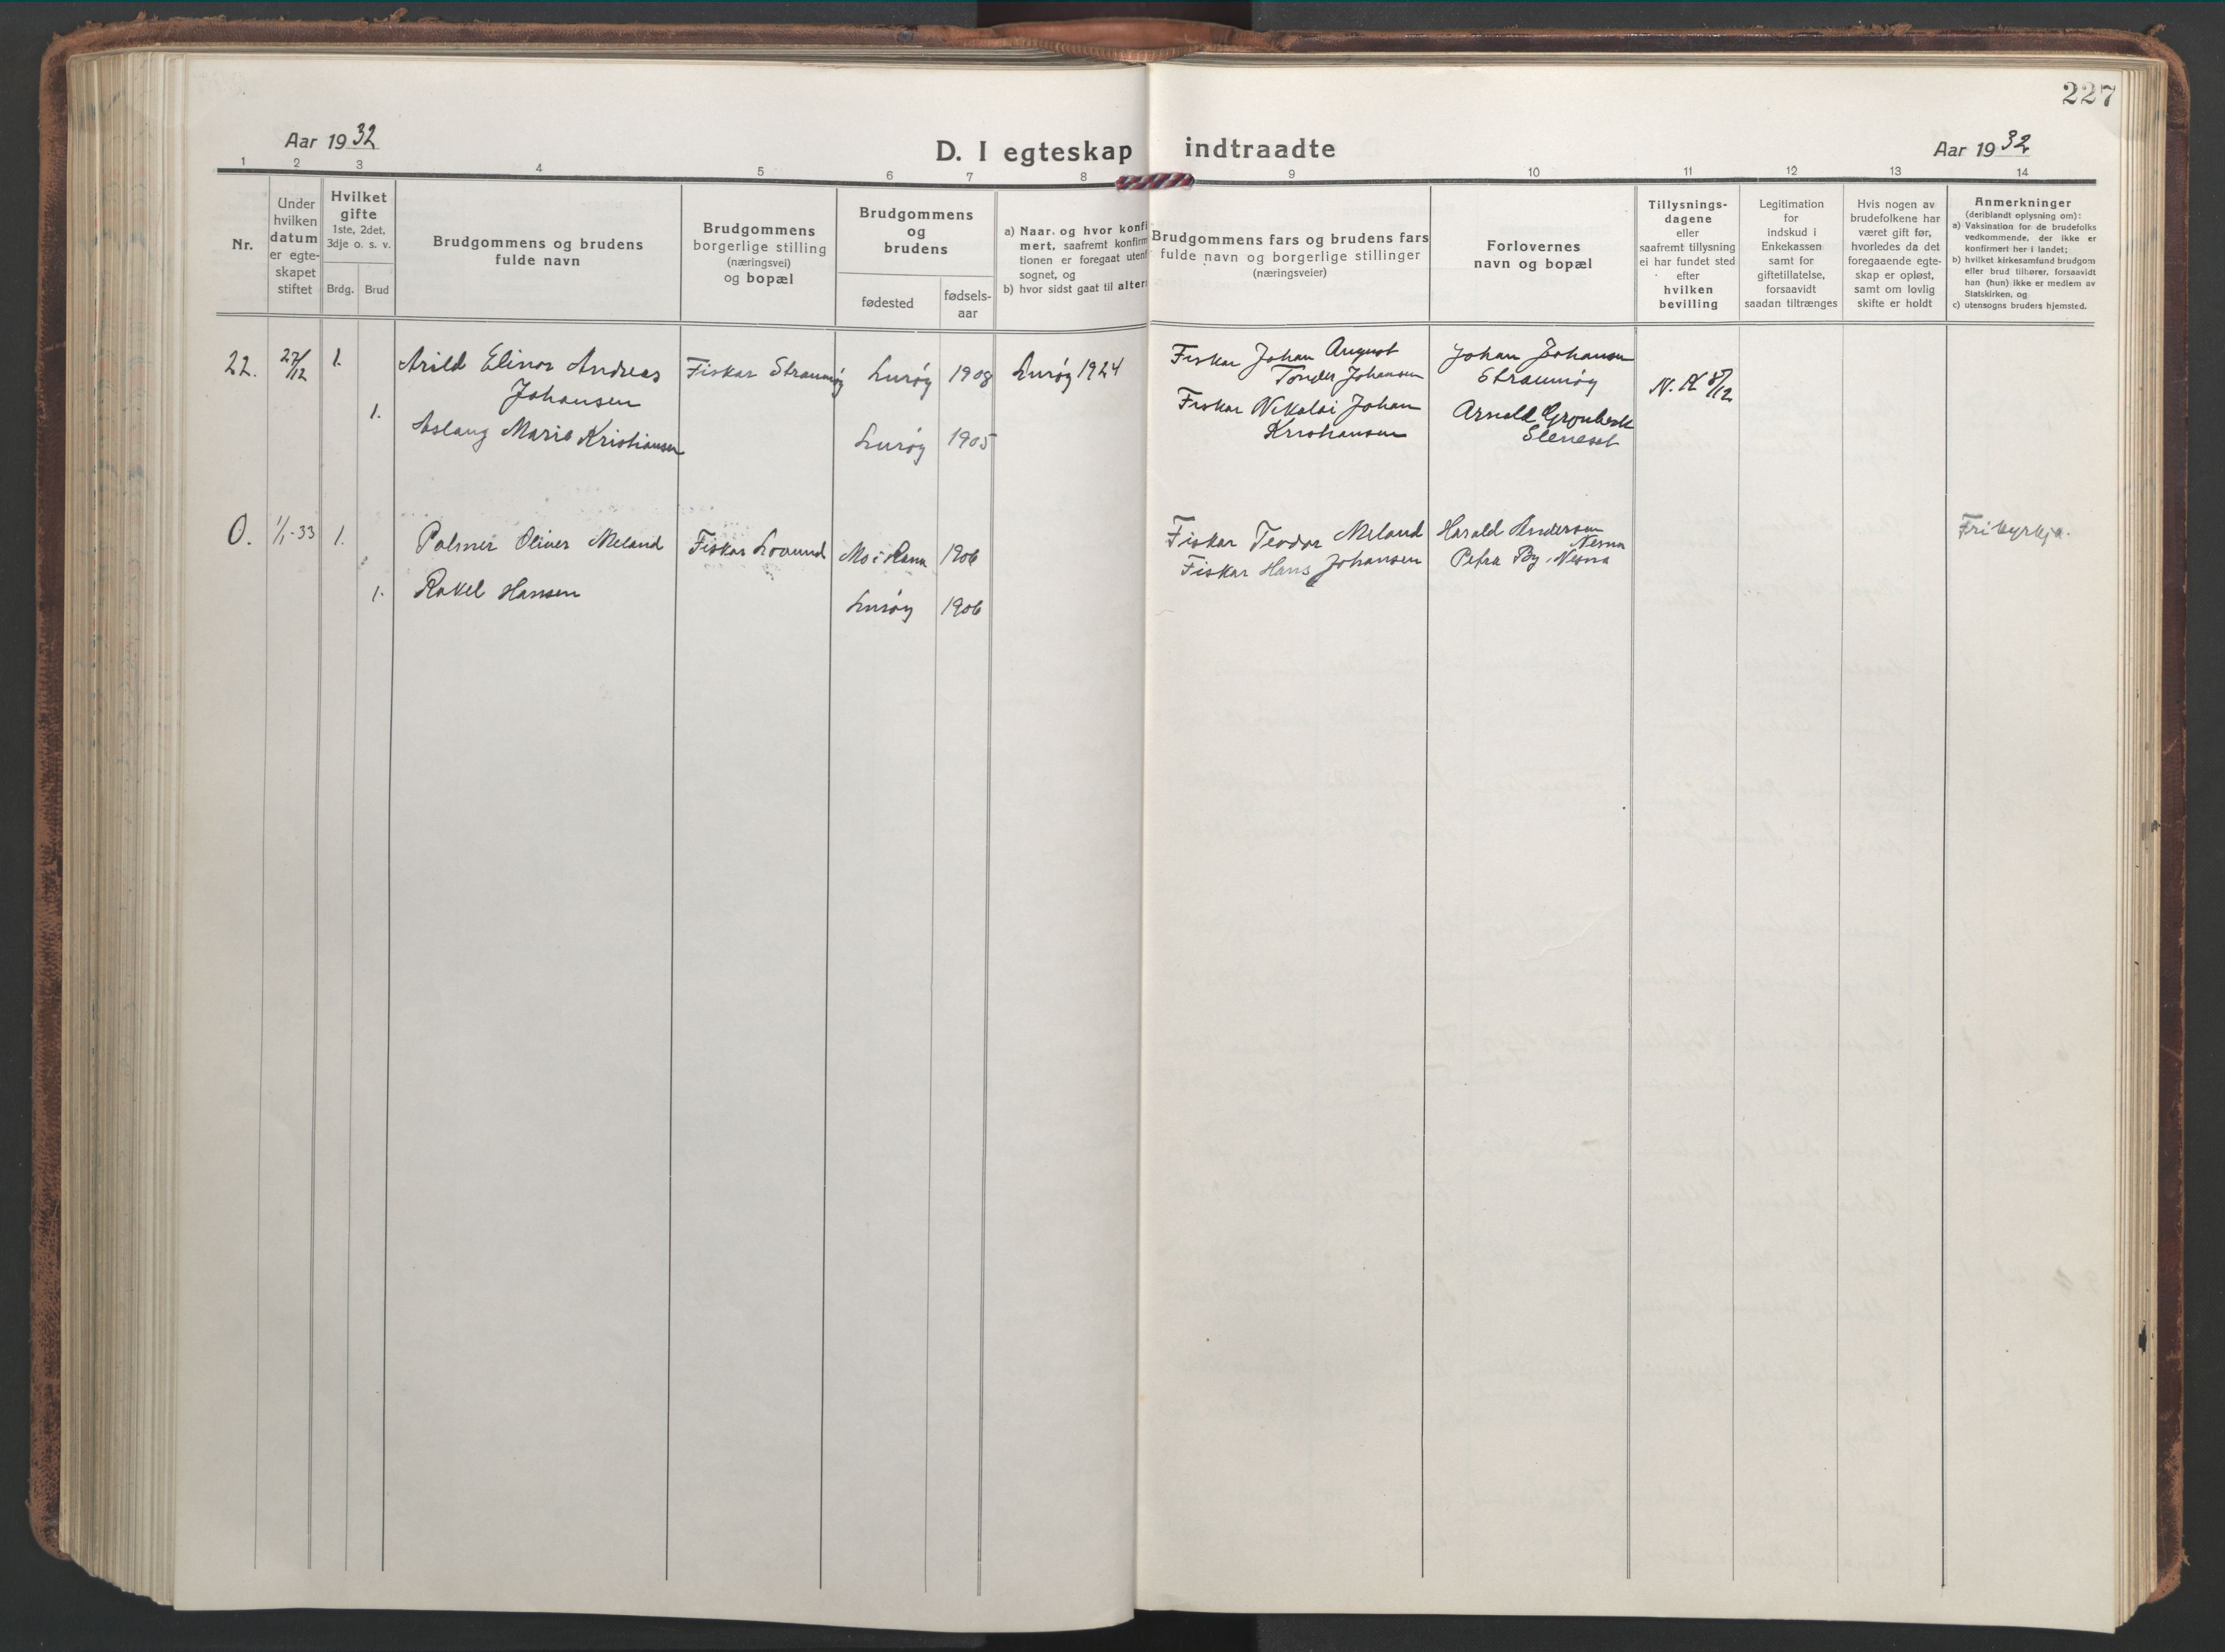 227
Aar 1932
D. I egteskap indtraadte
Aar 1932
1 2 3 4 5 6 7 8 9 10 11 12 13 14
Nr.
Under
hvilken
datum
er egte-
skapet
stiftet
Hvilket
gifte
1ste, 2det,
3dje o. s. v.
Brdg. Brud
Brudgommens og brudens
fulde navn
Brudgommens
borgerlige stilling
(næringsvei)
og bopæl
Brudgommens
og
brudens
fødested
fødsels-
aar
a) Naar og hvor konfi
mert, saafremt konfirm
tionen er foregaat uten
sognet, og
b) hvor sidst gaat til alter
Brudgommens fars og brudens fars
fulde navn og borgerlige stillinger
(næringsveier)
Forlovernes
navn og bopæl
Tillysnings-
dagene
eller
saafremt tillysning
ei har fundet sted
efter
hvilken
bevilling
Legitimation
for
indskud i
Enkekassen
samt for
giftetillatelse,
forsaavidt
saadan tiltrænges
Hvis nogen av
brudefolkene har
været gift før,
hvorledes da det
foregaaende egte-
skap er opløst,
samt om lovlig
skifte er holdt
Anmerkninger
(deriblandt oplysning om):
a) Vaksination for de brudefolks
vedkommende, der ikke er
konfirmert her i landet;
b) hvilket kirkesamfund brudgom
eller brud tilhører, forsaavidt
han (hun) ikke er medlem av
Statskirken, og
c) utensogns bruders hjemsted.
22.
27/12
1.
Arild Elinor Andreas
Johansen
Fiskar Straumøy
Lurøy
1908
Lurøy 1924
Fiskar Johan August
Tønder Johansen
Johan Johansen
Straumøy
N. K. 8/12
1.
Aslaug Marie Kristiansen
Lurøy
1905
Fiskar Nikolai Johan
Kristiansen
Arnold Grønbech
Sleneset
0.
1/1-33
1.
Palmer Oliver Meland
Fiskar Lovund
Mo i Rana
1906
Fiskar Teodor Meland
Harald Andersen
Nesna
Frikyrkja.
1.
Rakel Hansen
Lurøy
1906
Fiskar Hans Johansen
Petra By, Nesna